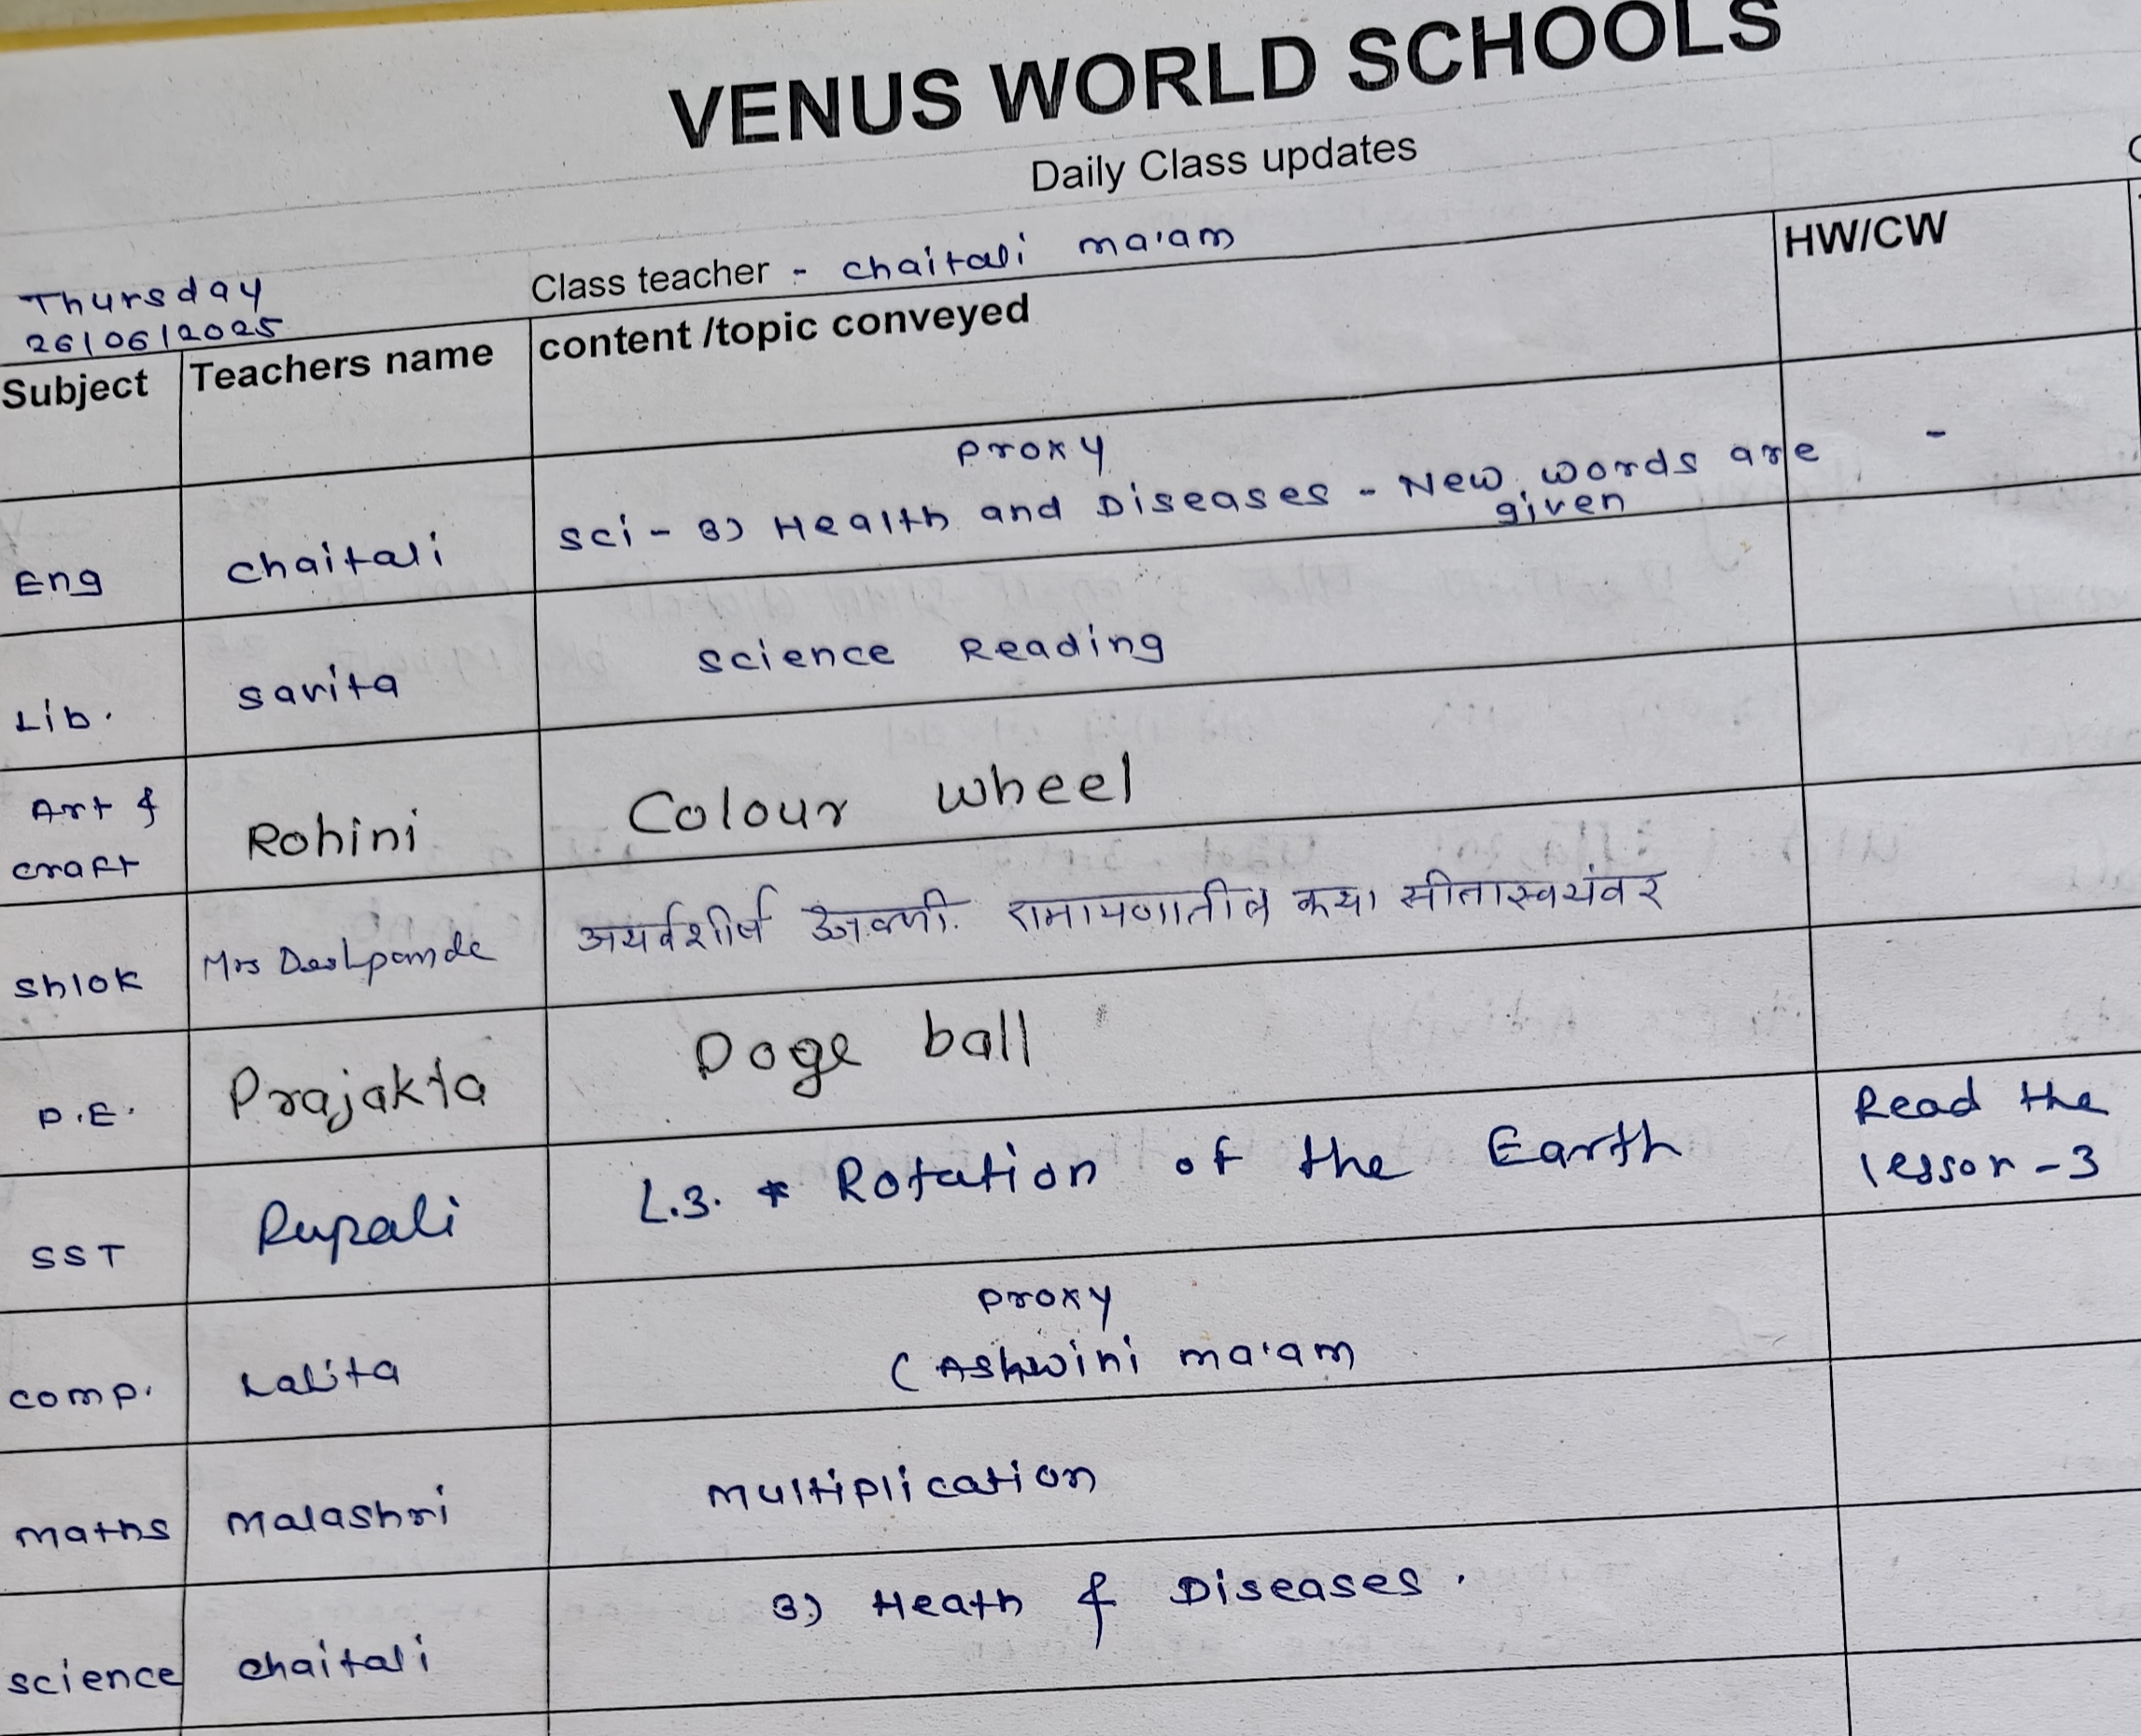 VENUS WORLD SCHOOLS
Daily Class updates
Thursday
26/06/2025
Class teacher - chaitali ma'am
Subject Teachers name content /topic conveyed HW/CW
Proxy
Eng chaitali sci - 3) Health and Diseases - New words are given -
Lib. savita science Reading
Art & craft Rohini Colour wheel
Shlok Mrs Deshpande अथर्वशीर्ष रामायणातील कथा सीतास्वयंवर
P.E. Prajakta Doge ball
SST Rupali L.3. * Rotation of the Earth Read the lesson - 3
Proxy
comp. Lalita ( Ashwini ma'am
maths Malashri multiplication
science chaitali 3) Heath & Diseases .